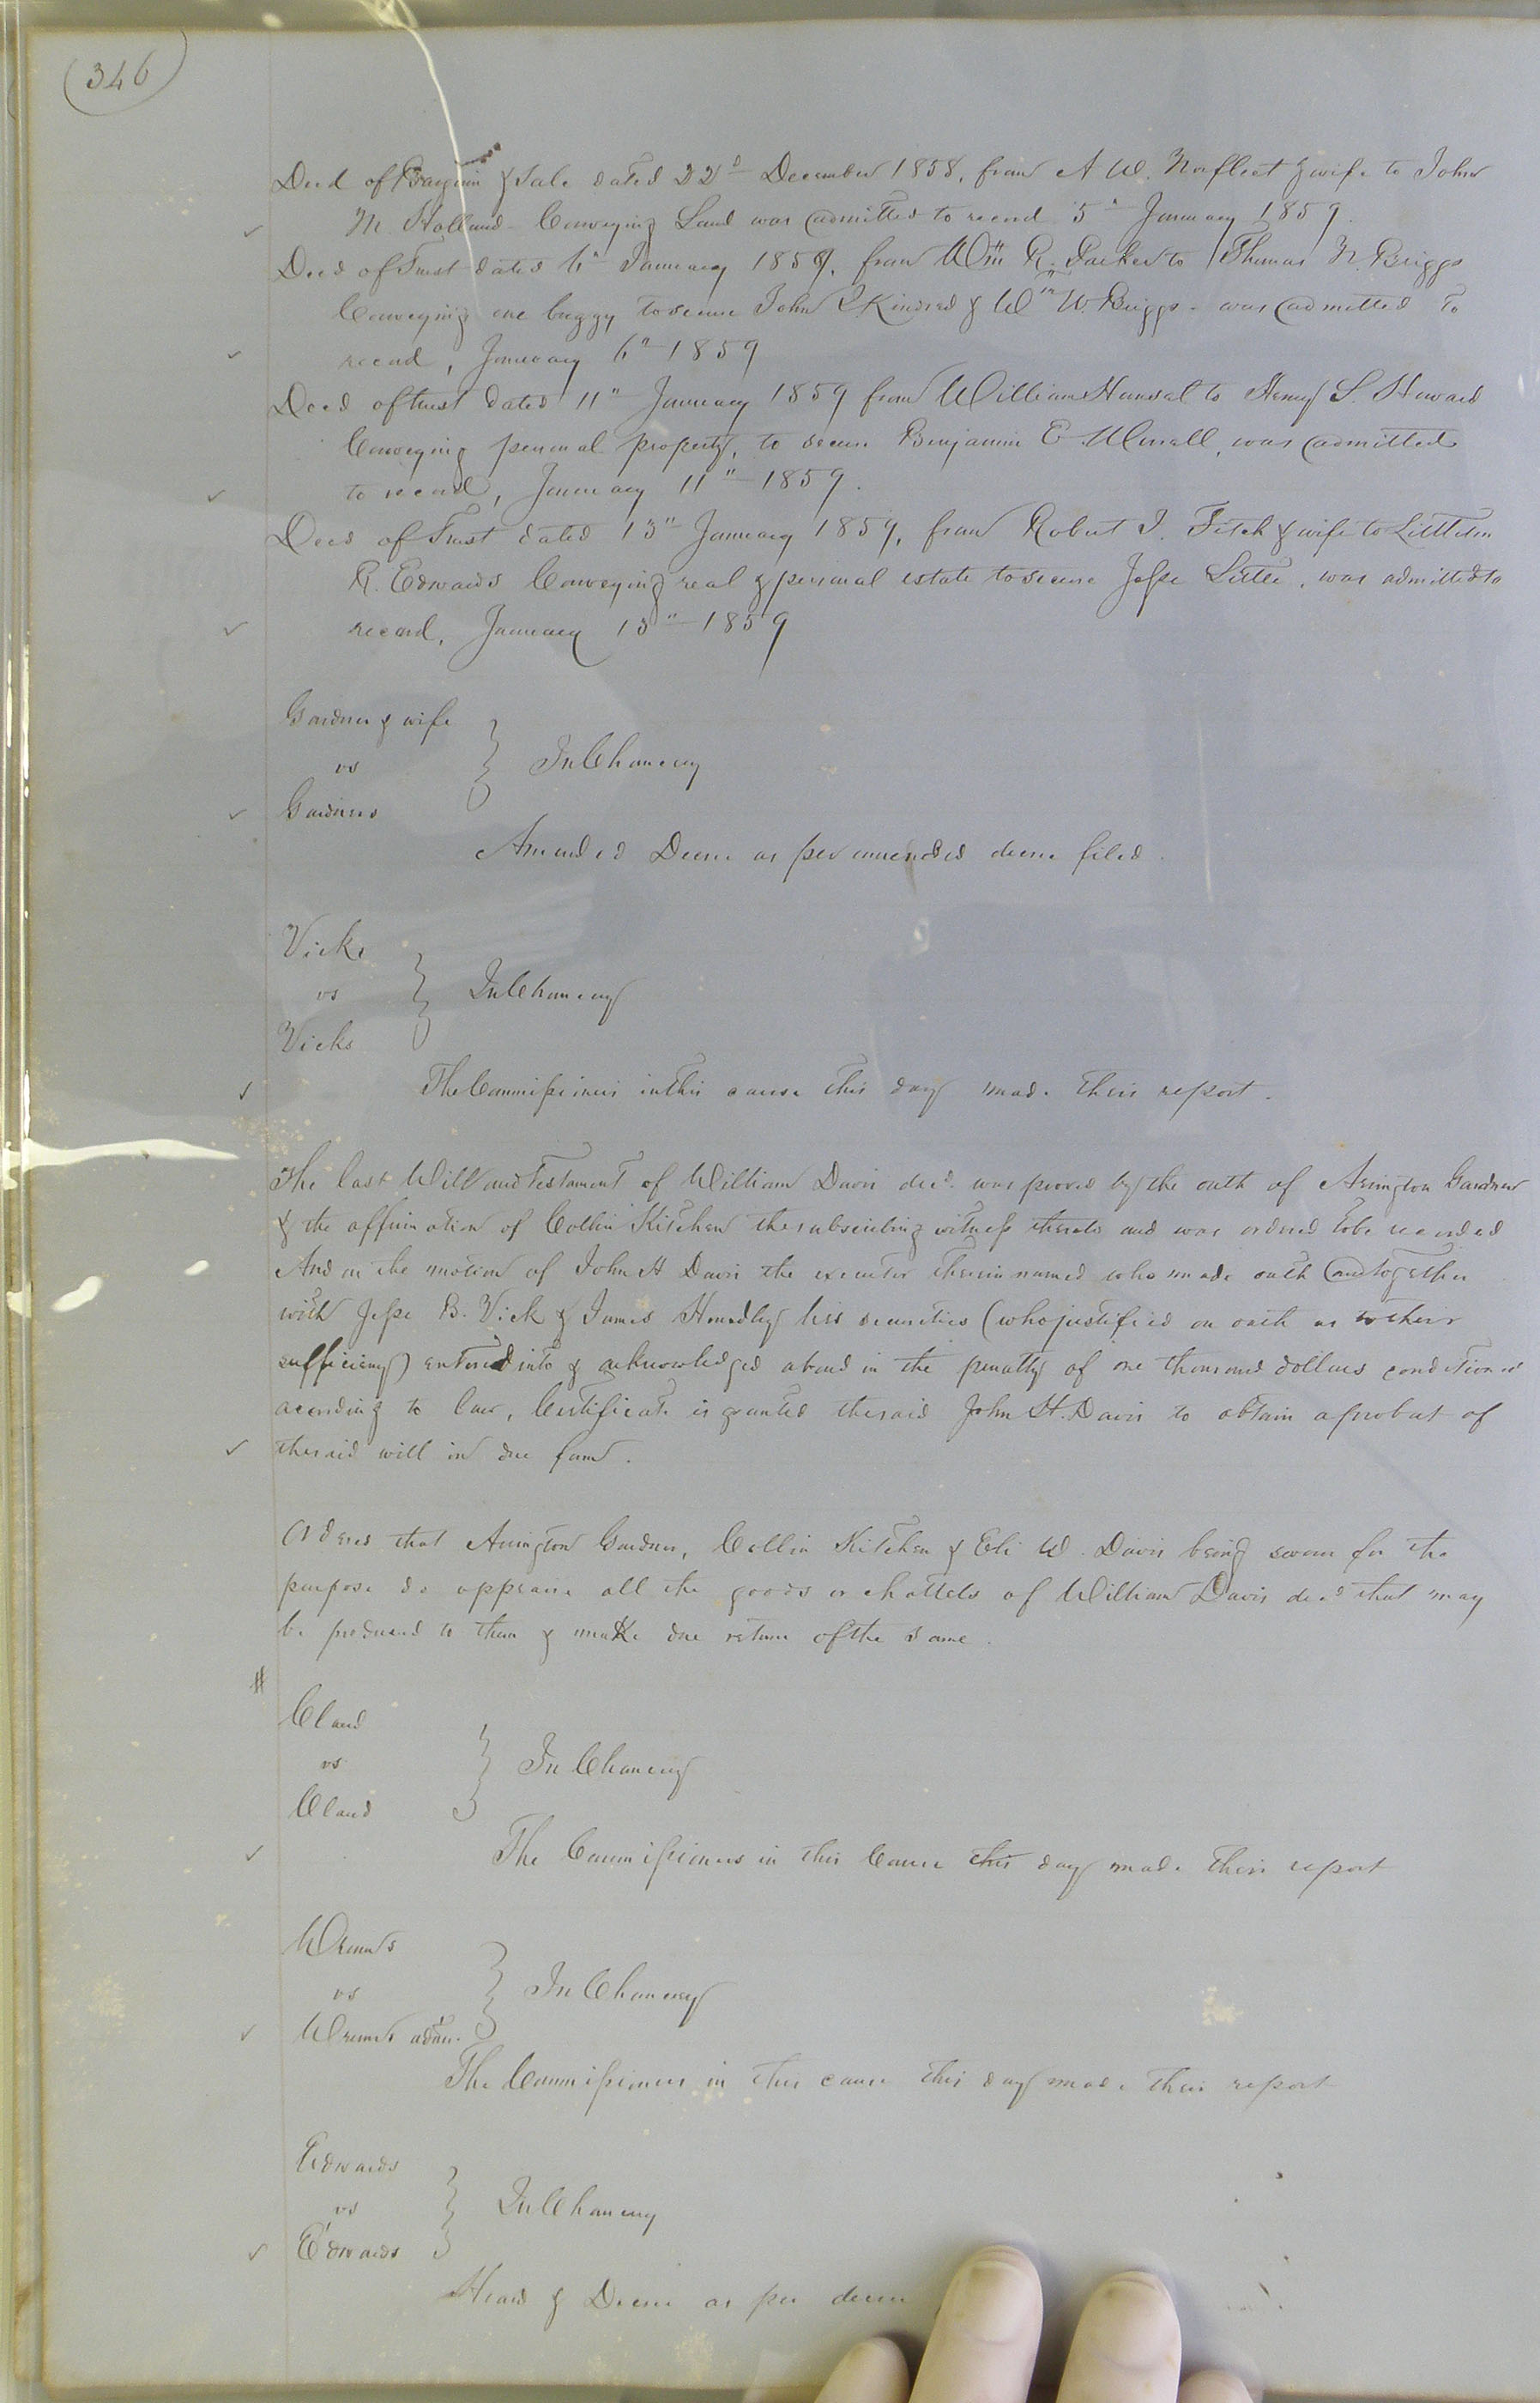 (346)
Deed of Bargain & Sale dated 22d December 1858, from A W. Norfleet & wife to John
M Holland - Conveying Land was admitted to record 5th January 1859.
Deed of Trust dated 6th January 1859, from Wm R. Parker to Thomas N. Briggs
Conveying one buggy to secure John Kindred & Wm W. Briggs - was admitted to
record, January 6th 1859
Deed of trust dated 11th January 1859 from William to Henry S. Howard
Conveying personal property, to secure Benjamin E. was admitted
to record, January 11th 1859.
Deed of Trust dated 13th January 1859, from Robert J. Fitch & wife to Littleton
R. Edwards Conveying real & personal estate to secure Jesse Little, was admitted to
record, January 13th 1859
Gardner & wife
vs
In Chancery
Gardners
Amended Decree as per amended decree filed.
Vicks
vs
In Chancery
Vicks
The Commissioners in this cause this day made their report.
The last Will and Testament of William Davis decd. was proved by the oath of Arington Gardner
& the affirmation of Collin Kitchen the subscribing witness thereto and was ordered to be recorded
And on the motion of John H Davis the executor therein named who made oath and together
with Jesse B. Vick & James his securities (who justified on oath as to their
sufficiency) entered into & acknowledged a bond in the penalty of one thousand dollars conditioned
according to law, Certificate is granted the said John H. Davis to obtain a probat of
the said will in due form.
Ordered that Arington Gardner, Collin Kitchen & Eli W. Davis being sworn for the
purpose do appraise all the goods or chattels of William Davis decd that may
be produced to them & make due return of the same.
Claud
vs
In Chancery
Claud
The Commissioners in this Cause this day made their report
Wrenns
vs
In Chancery
Wrenns admr.
The Commissioners in this cause this day made their report
Edwards
vs
In Chancery
Edwards
Heard & Decree as per decree